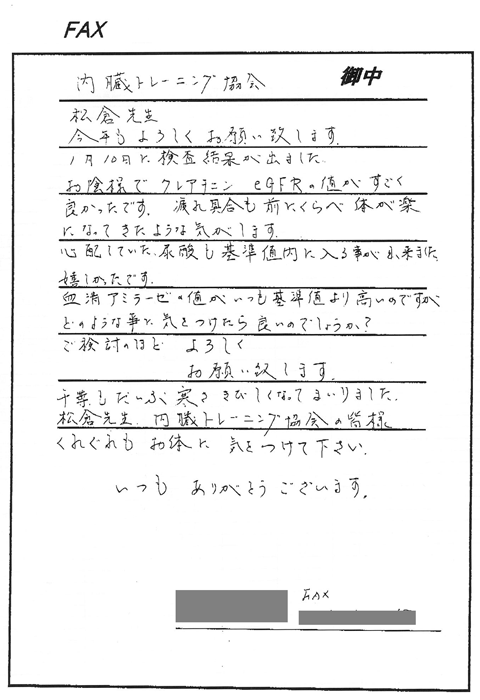 FAX
内臓トレーニング協会 御中
松倉先生
今年も よろしく お願い致します。
1月10日に検査結果が出ました。
お陰様で クレアチニン eGFRの値が すごく
良かったです。 疲れ具合も前にくらべ 体が楽
になってきたような気がします。
心配していた 尿酸も基準値内に入る事が出来ました
嬉しかったです。
血清アミラーゼの値が いつも基準値より高いのですが
どのような事に気をつけたら良いのでしょうか?
ご検討のほど よろしく
お願い致します。
千葉もだいぶ 寒さ きびしくなってまいりました。
松倉先生、内臓トレーニング協会の皆様
くれぐれも お体に 気をつけて下さい。
いつも ありがとう ございます。
FAX